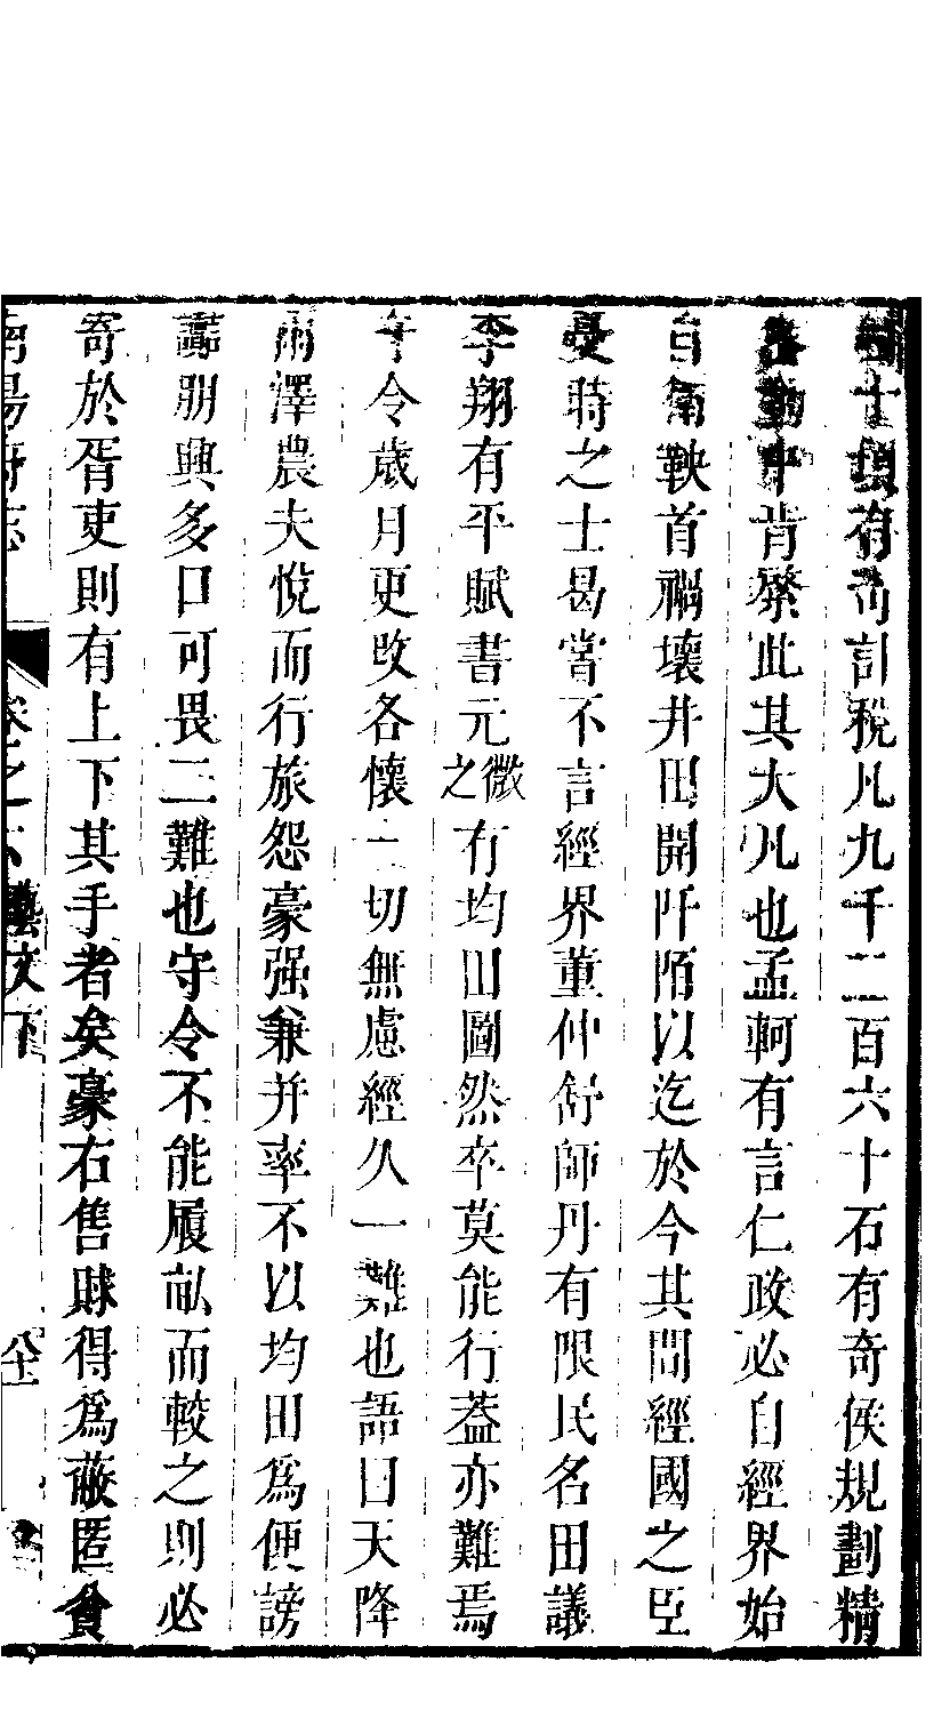 十頃有司計稅凡九千二百六十石有奇侯規劃精
中肯綮此其大凡也孟軻有言仁政必自經界始
自衛鞅首禍壞井田開阡陌以迄於今其間經國之臣
憂時之士曷嘗不言經界董仲舒師丹有限民名田議
李翔有平賦書元微之有均田圖然卒莫能行葢亦難焉
守令歲月更改各懷一切無慮經久一難也語曰天降
雨澤農夫悅而行旅怨豪强兼并率不以均田爲便謗
讟朋興多口可畏二難也守令不能履畝而較之則必
寄於胥吏則有上下其手者矣豪右售賕得爲蔽匿貧
南陽府志 卷之六 藝文下 八十一